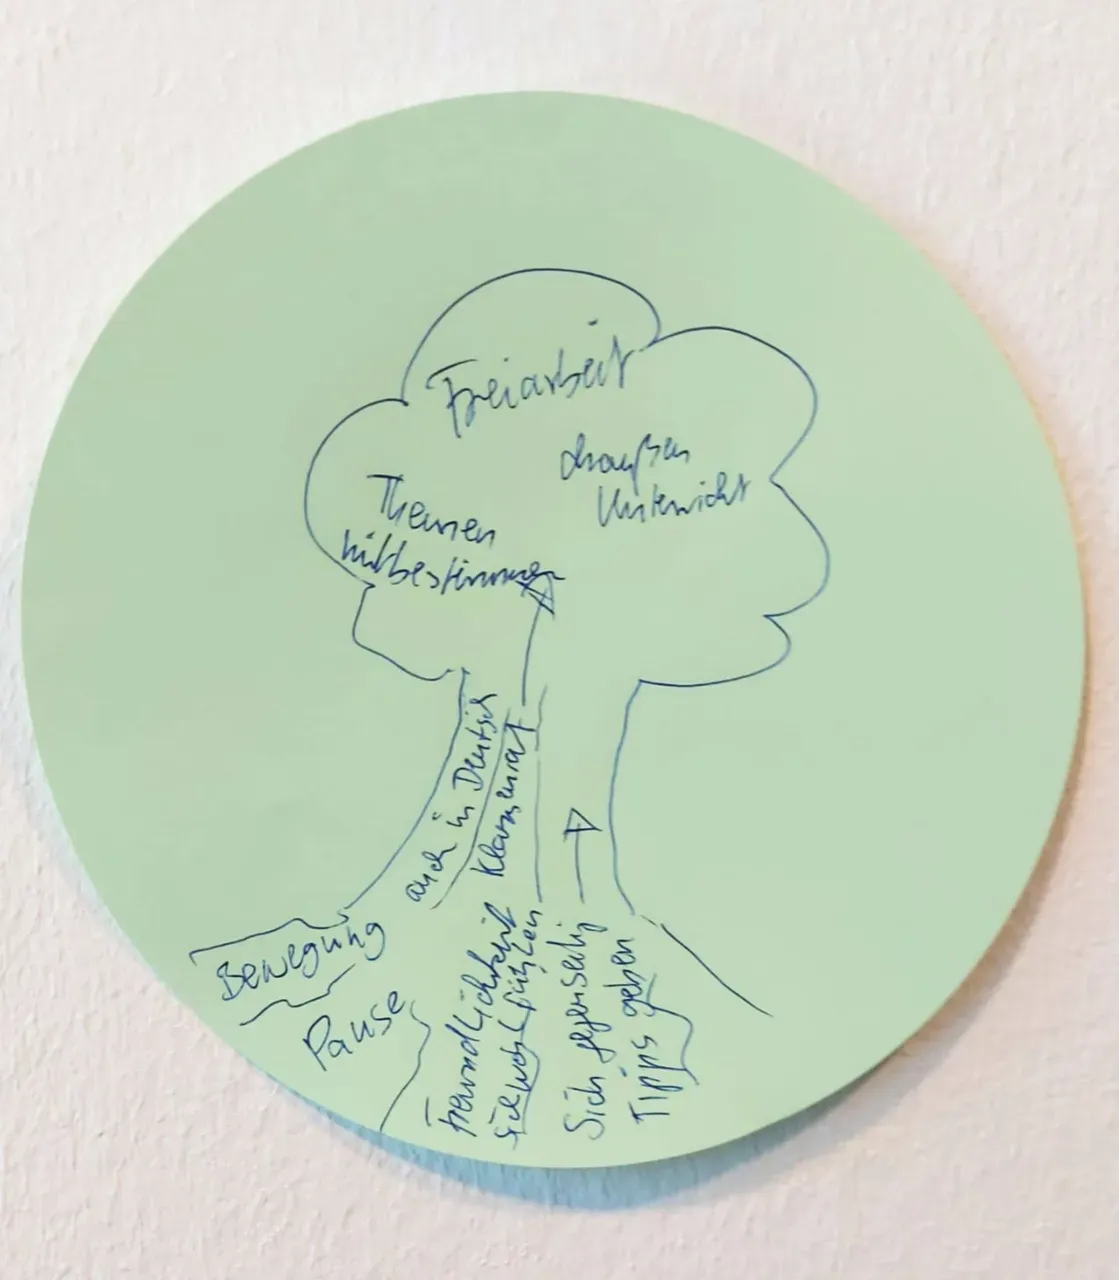 Freiarbeit
draußen
Unterricht
Themen
mitbestimmen
auch in Deutsch
Klassenrat
Bewegung
Pause
Freundlichkeit
sich wohl fühlen
Sich gegenseitig
Tipps geben